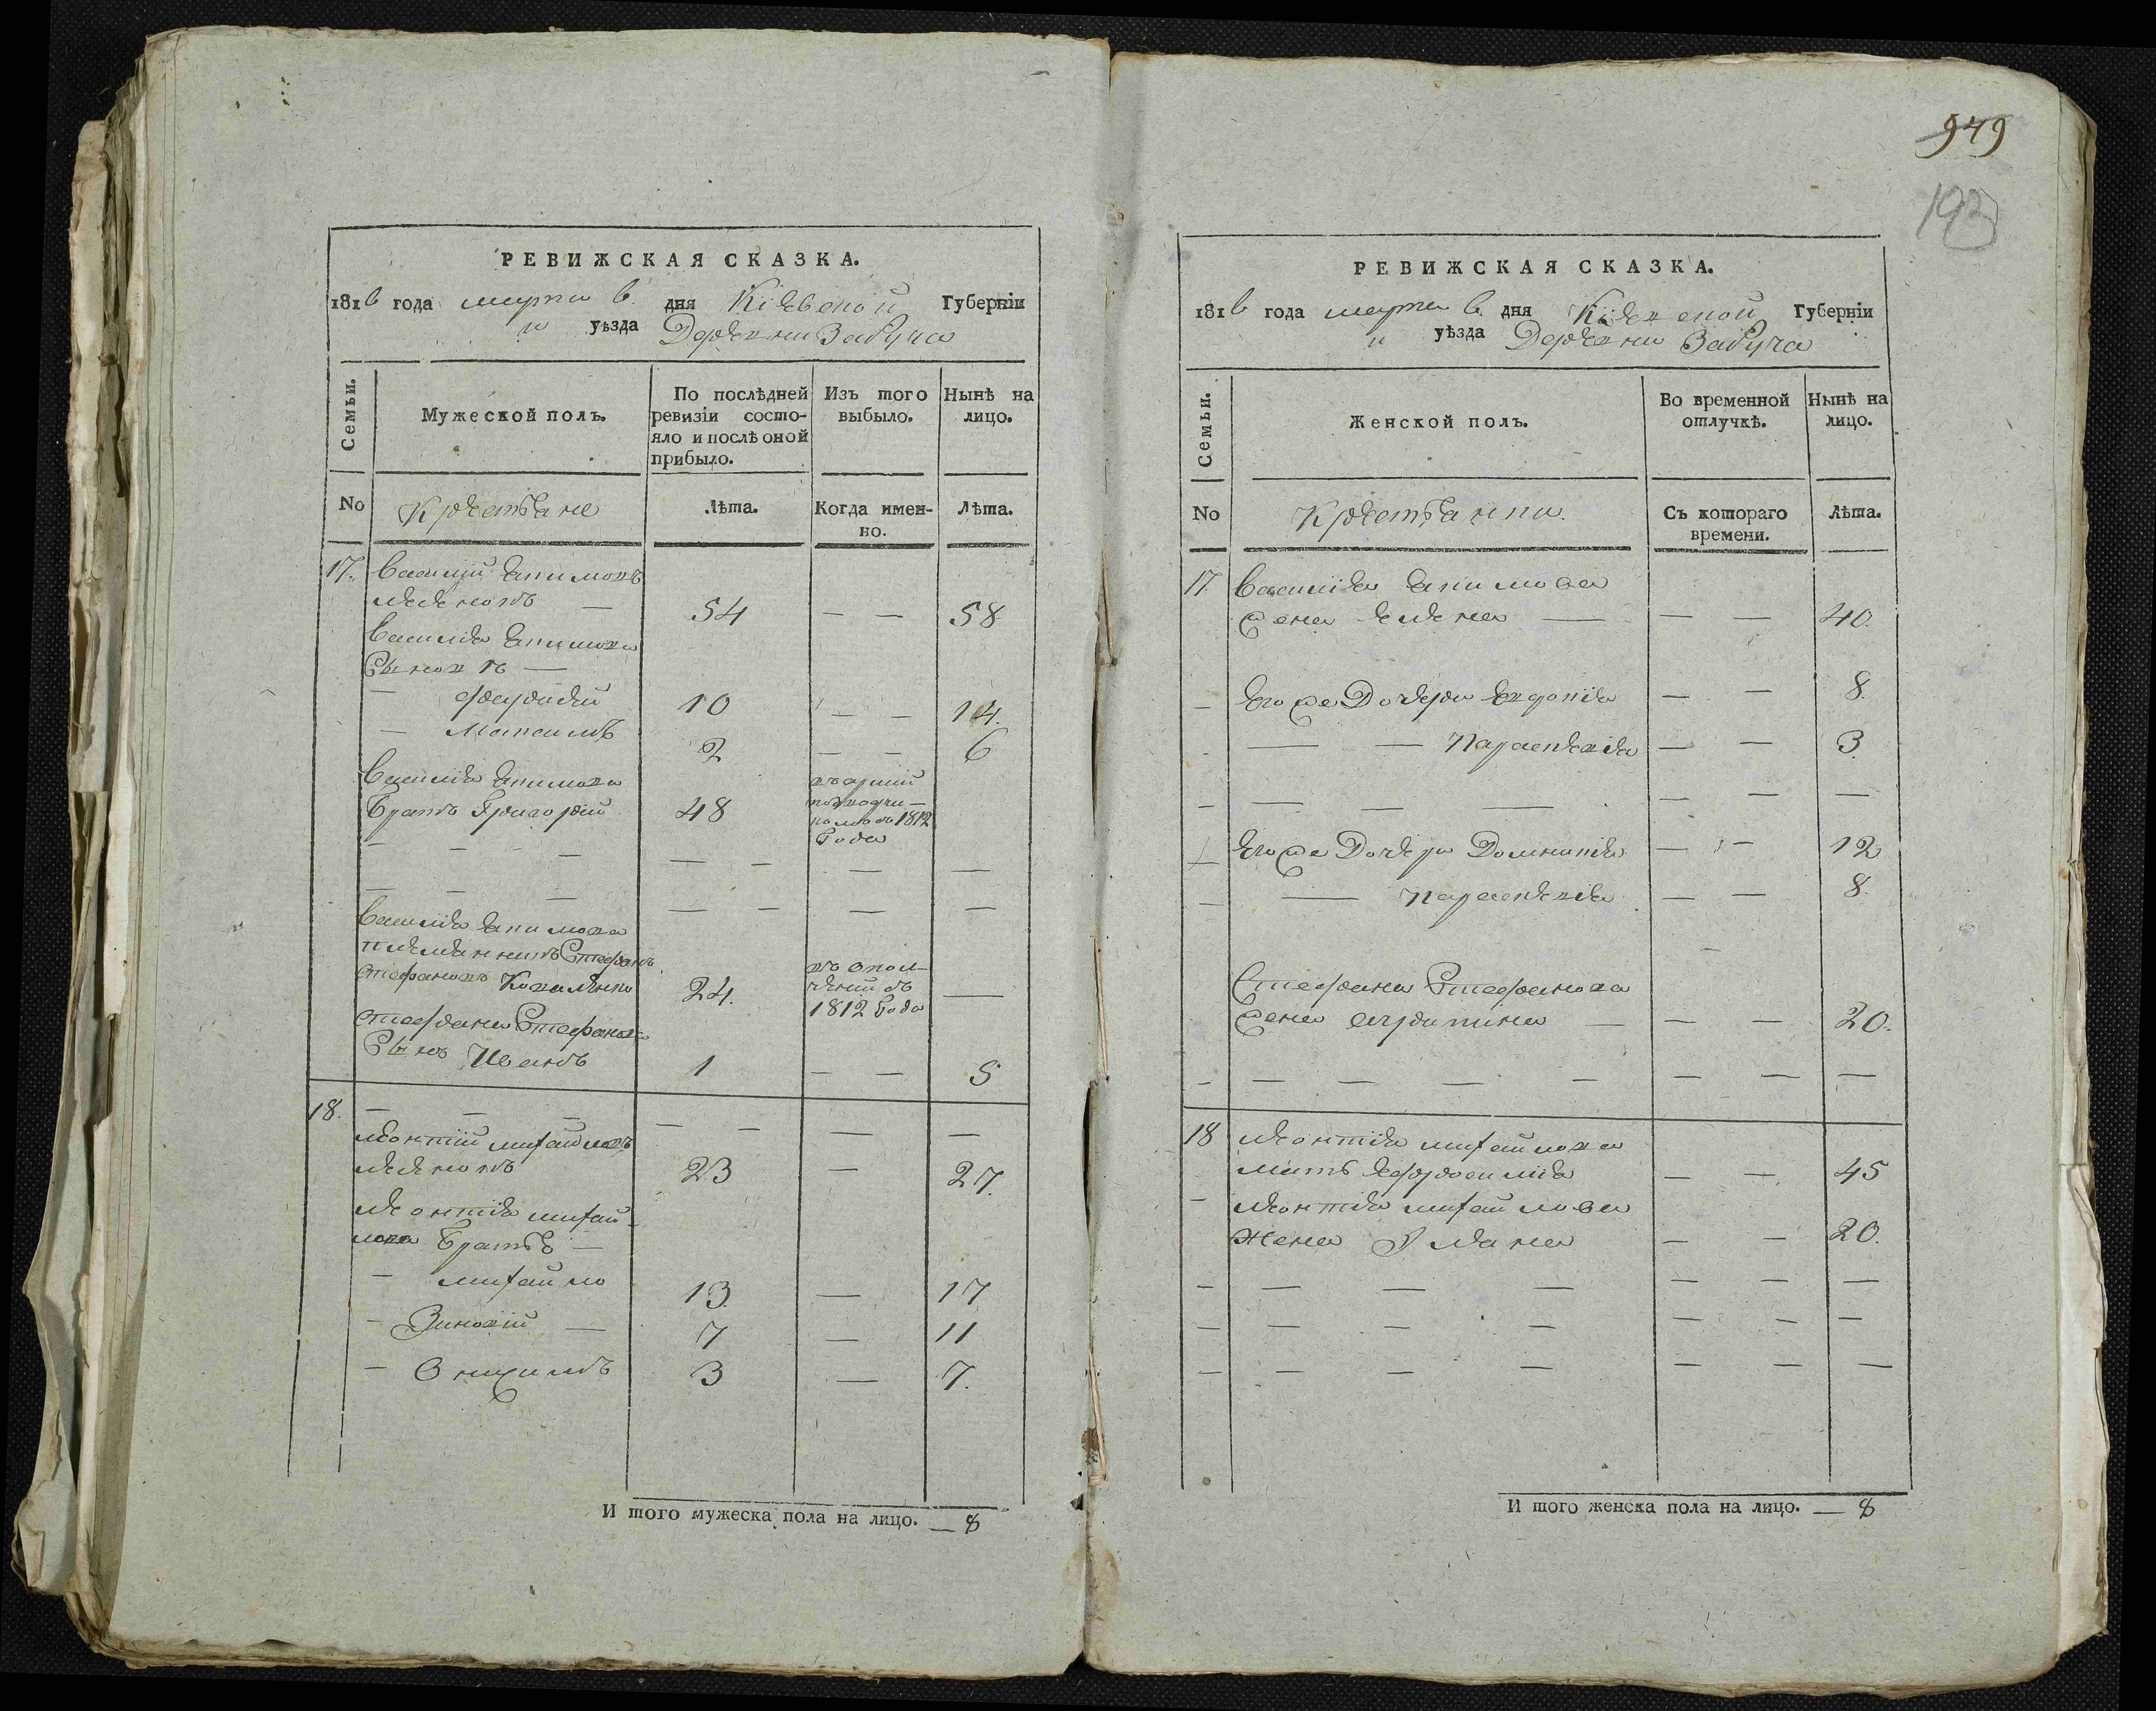 РЕВИЖСКАЯ СКАЗКА.
1816 года марта 6. дня Кіевской Губерніи
и уѣзда Деревни Забуча
Семьи.
Мужеской полъ.
По послѣдней ревизіи состо-
яло и послѣ оной
прибыло.
Изъ того
выбыло.
Нынѣ на
лицо.
No
Крестьяне
Лѣта.
Когда имен-
но.
Лѣта.
17. Василий Екимовъ
54 — — 58
Василія Екимова
Сыновъ —
—
10 — — 14.
— Максимъ 2 — — 6
Василія Екимова
Братъ Григорій 48
1812
Года
— — — — — — —
— — — — — — —
Василія Екимова
племянникъ Стефанъ
Стефановъ Коваленко 24. —
въ Опол-
ченій въ
1812 Года
Стефана Стефанова
Сынъ Иванъ 1 — — 5
18. — — — — — — —
Леонтій Михайловъ
23 — 27.
Леонтія Михай-
лова Братья —
— Михайло 13. — 17
— Зиновій — 7 — 11
— Онисимъ 3 — 7.
И того мужеска пола на лицо. — 8
949
193
РЕВИЖСКАЯ СКАЗКА.
1816 года марта 6. дня Кіевской Губерніи
и уѣзда Деревни Забуча
Семьи.
Женской полъ.
Во временной
отлучкѣ.
Нынѣ на
лицо.
No
Крестьянки.
Съ котораго
времени.
Лѣта.
17. Василія Екимова
жена Елена — — — 40.
— Его же Дочери Евдокія — — 8.
— — Параскевія — — 3.
— — — — — — —
Его же Дочери Домникія — — 12
— — Параскевія — — 8.
—
Стефана Стефанова
жена — — — 20.
— — — — — — — —
18 Леонтія Михайлова
мать Ефросинія — — 45
— Леонтія Михайлова
жена Уляна — — 20.
— — — — — — —
— — — — — — —
— — — — — — —
И того женска пола на лицо. — 8